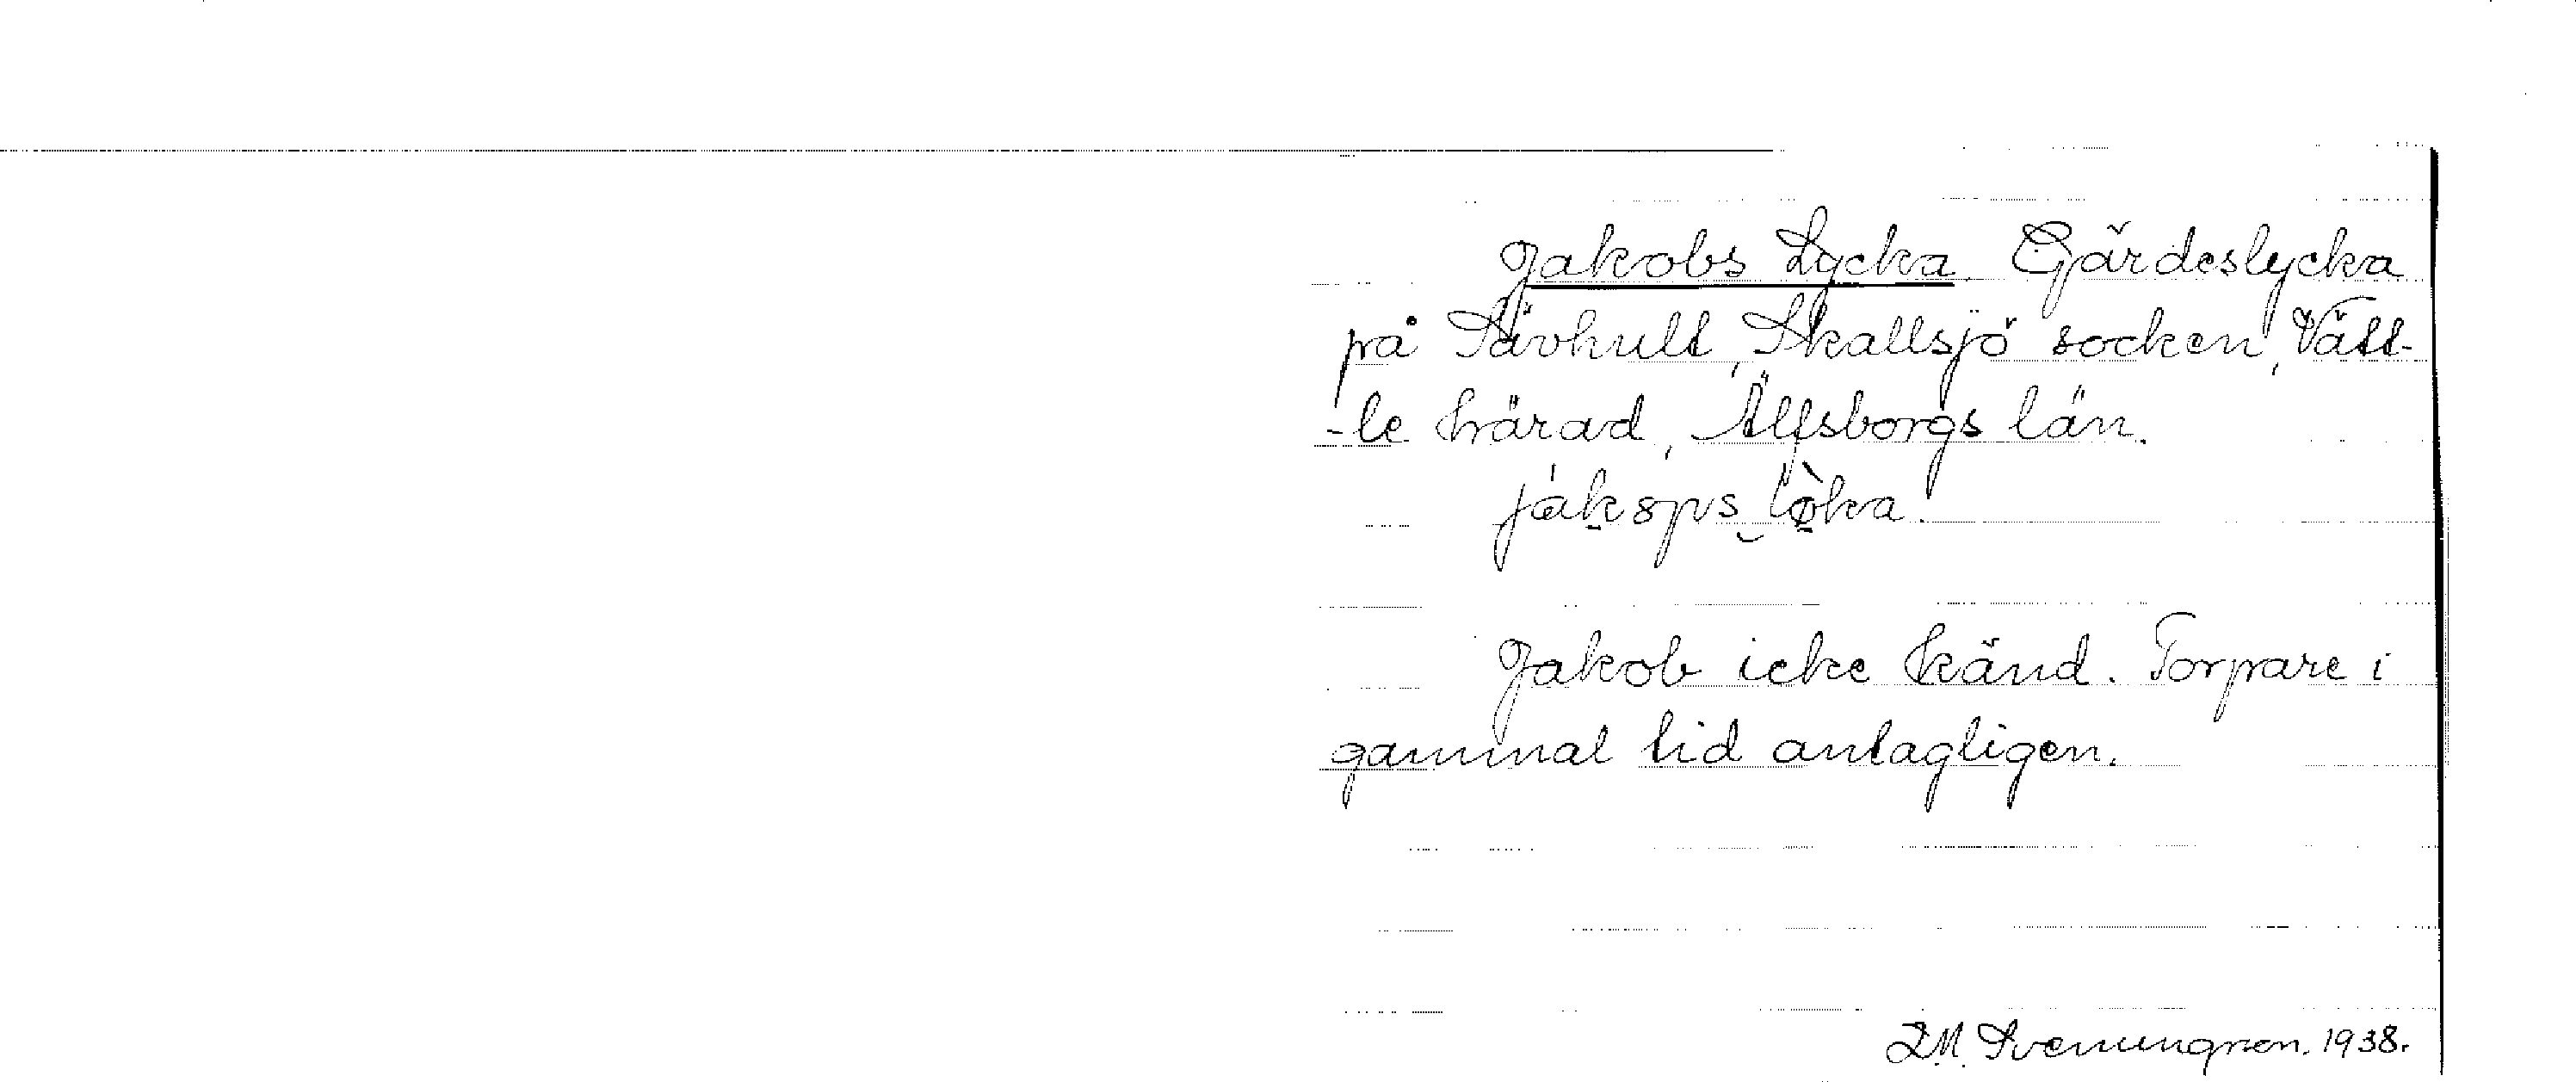 Jakobs Lycka. Gärdeslycka
på Sävhult, Skallsjö socken, Vätt-
-le härad, Älfsborgs län.
Jakob icke känd. Torpare i
gammal tid antagligen.
1938.